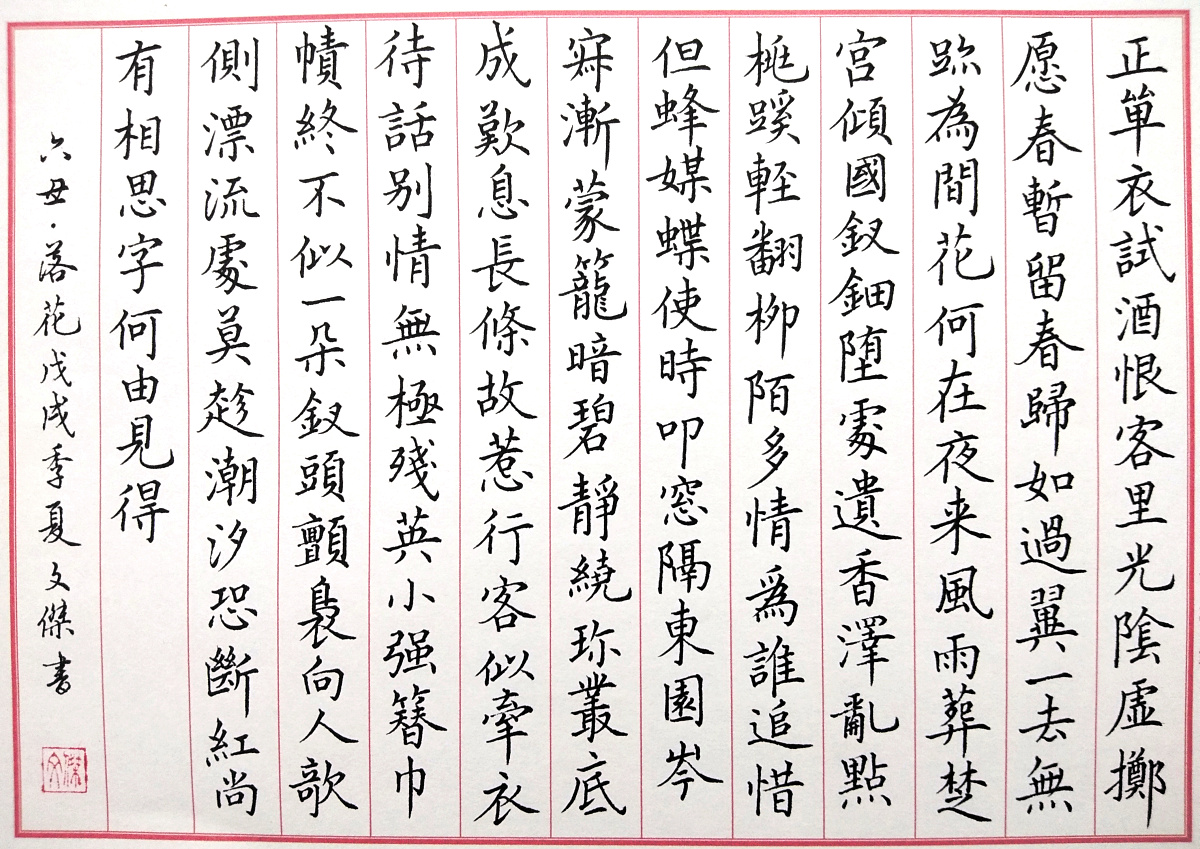 正單衣試酒恨客里光陰虛擲
愿春暫留春歸如過翼一去無
跡為間花何在夜来風雨葬楚
宮傾國釵鈿堕處遺香澤亂點
桃蹊輕翻柳陌多情爲誰追惜
但蜂媒蝶使時叩窓隔東園岑
寂漸蒙籠暗碧靜繞珎叢底
成歎息長條故惹行客似牽衣
待話别情無極殘英小强簪巾
幘終不似一朵釵頭顫裊向人欹
側漂流處莫趁潮汐恐斷紅尚
有相思字何由見得
六丑·落花戊戌季夏文傑書
文傑